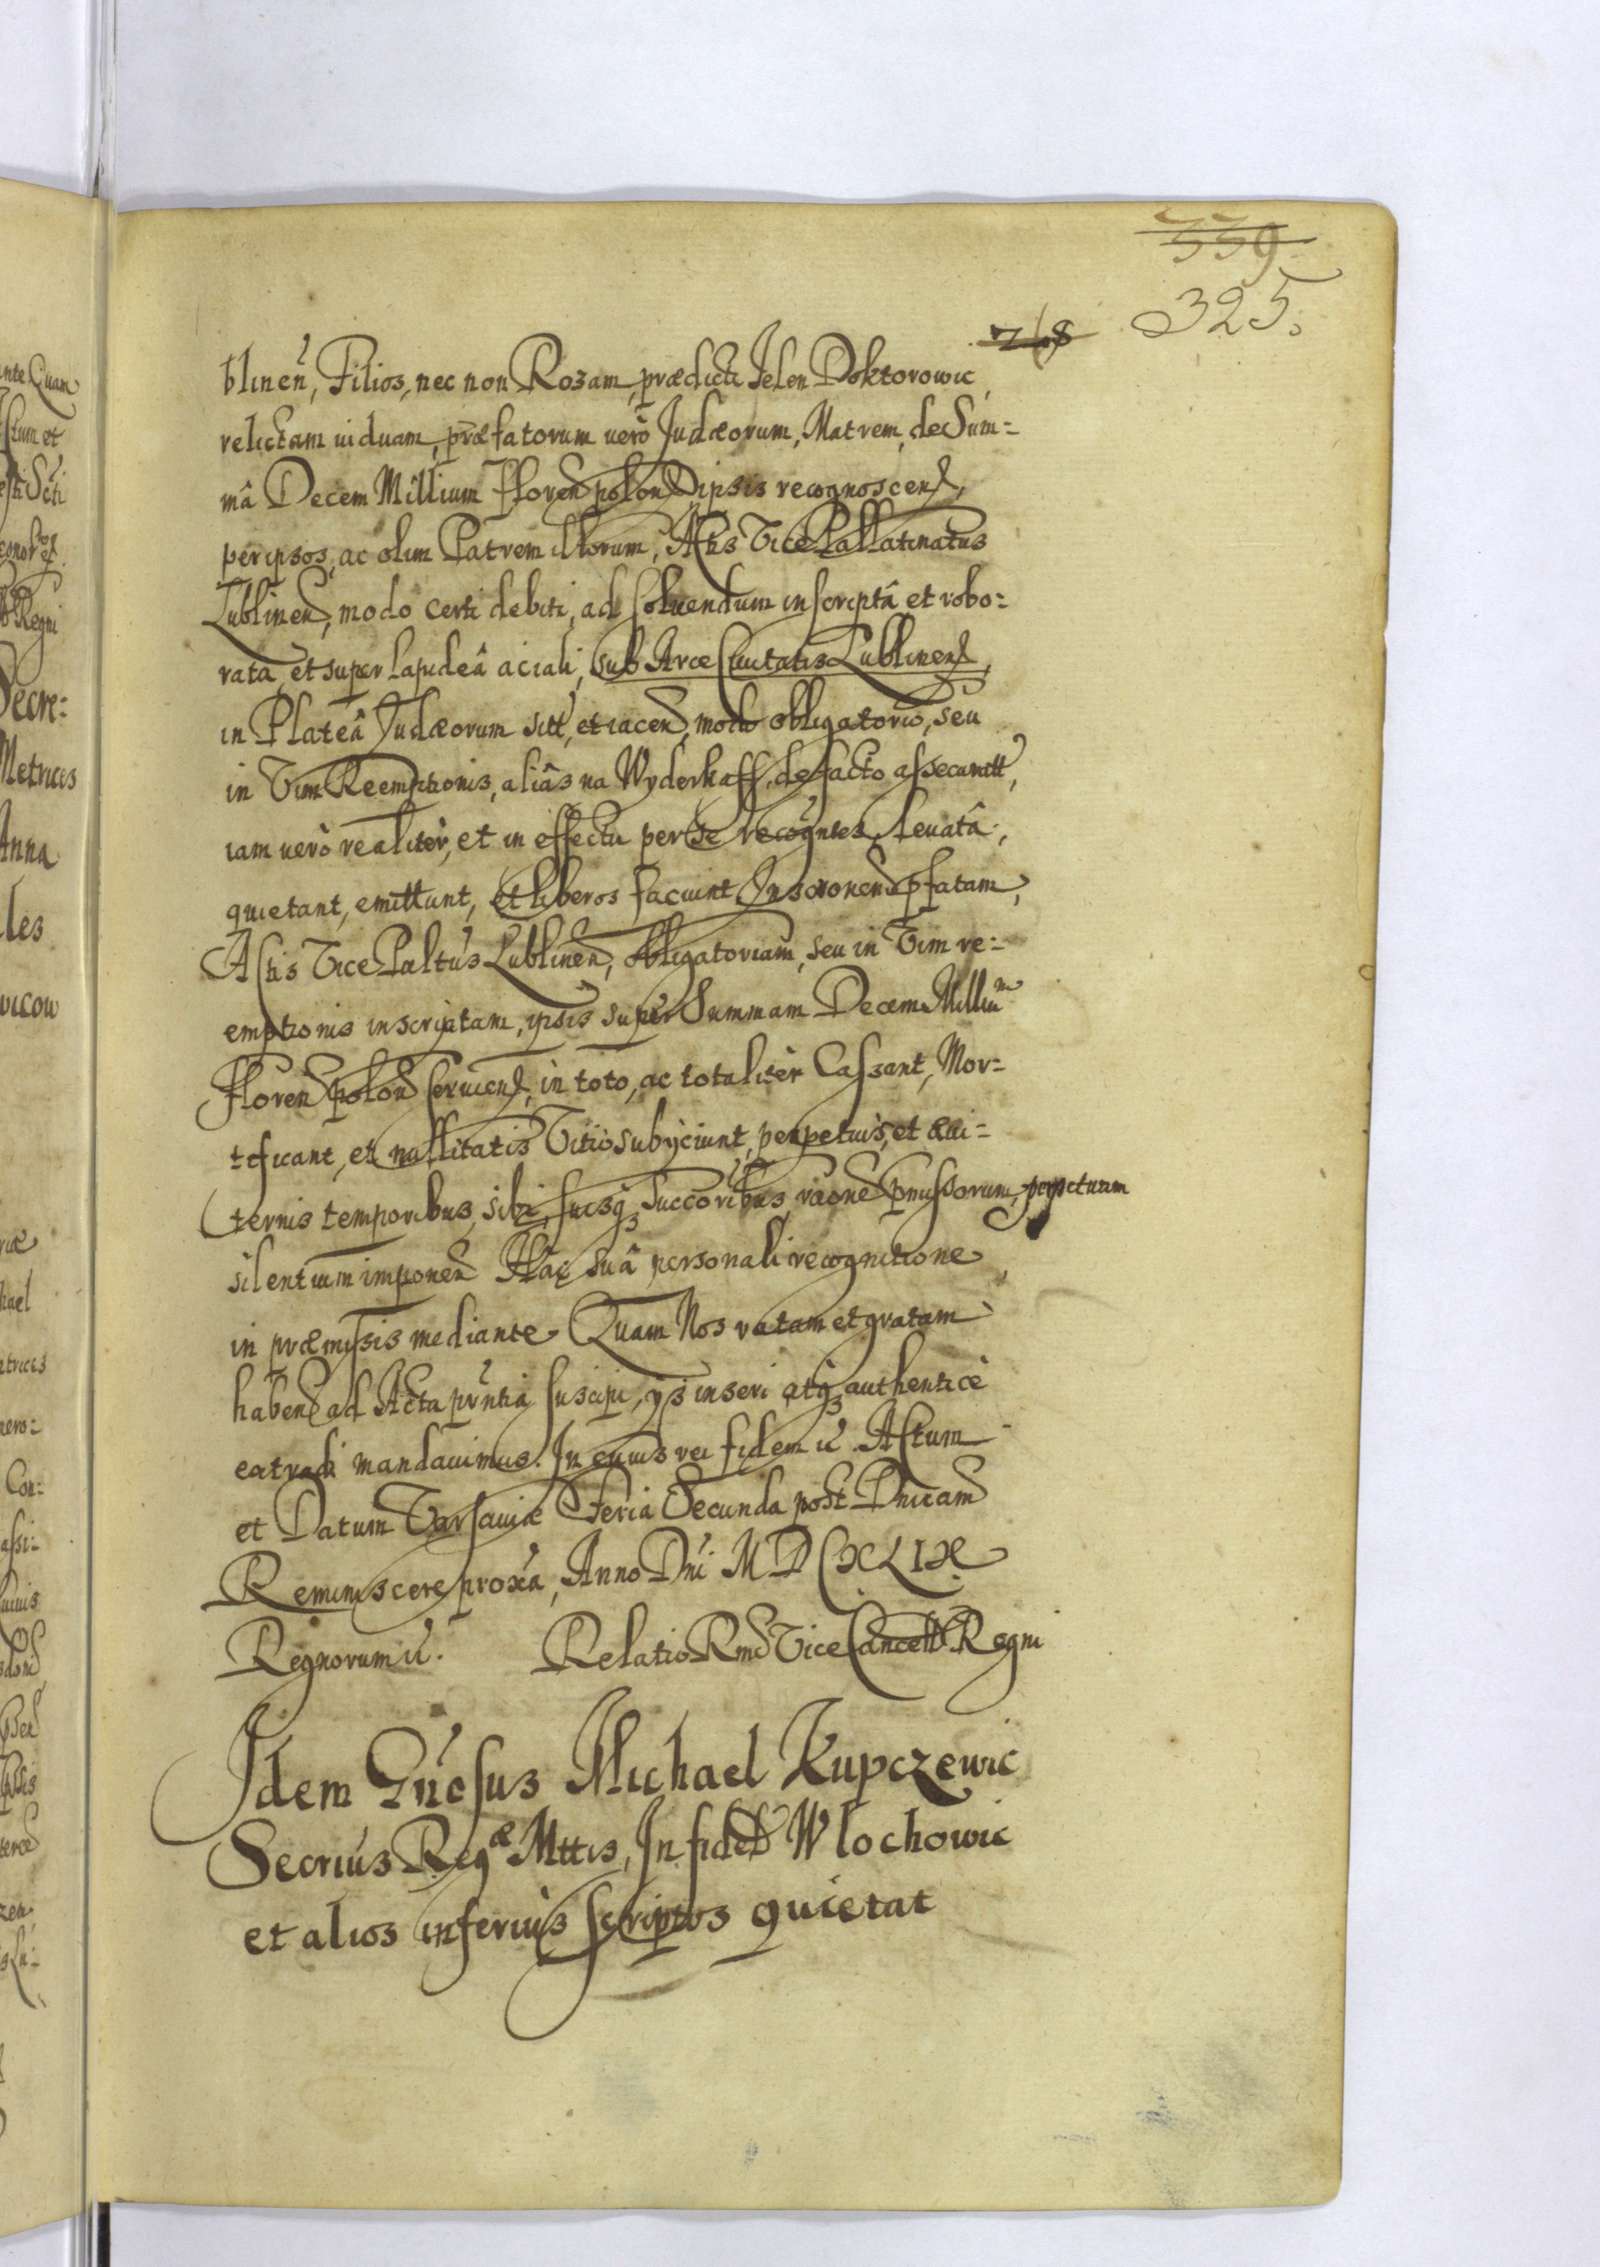 339
325.
768
blinen, Filios, nec non Rozam, prædicti Jelen Doktorowic
relictam uiduam, præfatorum uerò Judæorum, Matrem, de Sum=
mâ Decem Millium Floren polon ipsis recognoscen,
per ipsos, ac olim Patrem illorum, Actis Vice Pallatinatus
Lublinen, modo certi debiti, ad soluendum inscriptâ et robo=
rata, et super lapideâ aciali, sub Arce Ciuitatis Lublinen,
in Plateâ Judæorum sitt, et iacen, modo obligatorio, seu
in Vim Reemptionis, aliâs na Wyderkaff, de facto assecuratt,
iam uerò realitèr, et in effectu per se recogntes leuatâ,
quietant, emittunt, et liberos faciunt Inscrionem pfatam,
Actis Vice Paltus Lublinen, obligatoriam, seu in Vim re=
emptionis inscriptam, ipsis super Summam Decem Milliu m
Floren polon seruien, in toto, ac totalitèr Cassant, Mor=
tificant, et nullitatis Vitio subÿciunt, perpetuis, et æui=
ternis temporibus, sibi, suisq3 Succoribus, raone pmissorum, perpetuum
silentium imponen Hac suâ personali recognitione
in præmissis mediante Quam Nos ratam et gratam
haben ad Acta pñtia suscipi, ijs inseri atq3 authenticè
extradi mandauimus. In cuius rei fidem ũ. Actum
et Datum Varsauiæ Feria Secunda post Dnicam
Reminiscere proxa, Anno Dni MDCXLIX
Regnorum ũ. Relatio Rmd Vice Cancell Regni
Idem Gnosus Michael Kupczewic
Secrius Regæ Mttis, Infidel Wlochowic
et alios inferius scriptos quietat